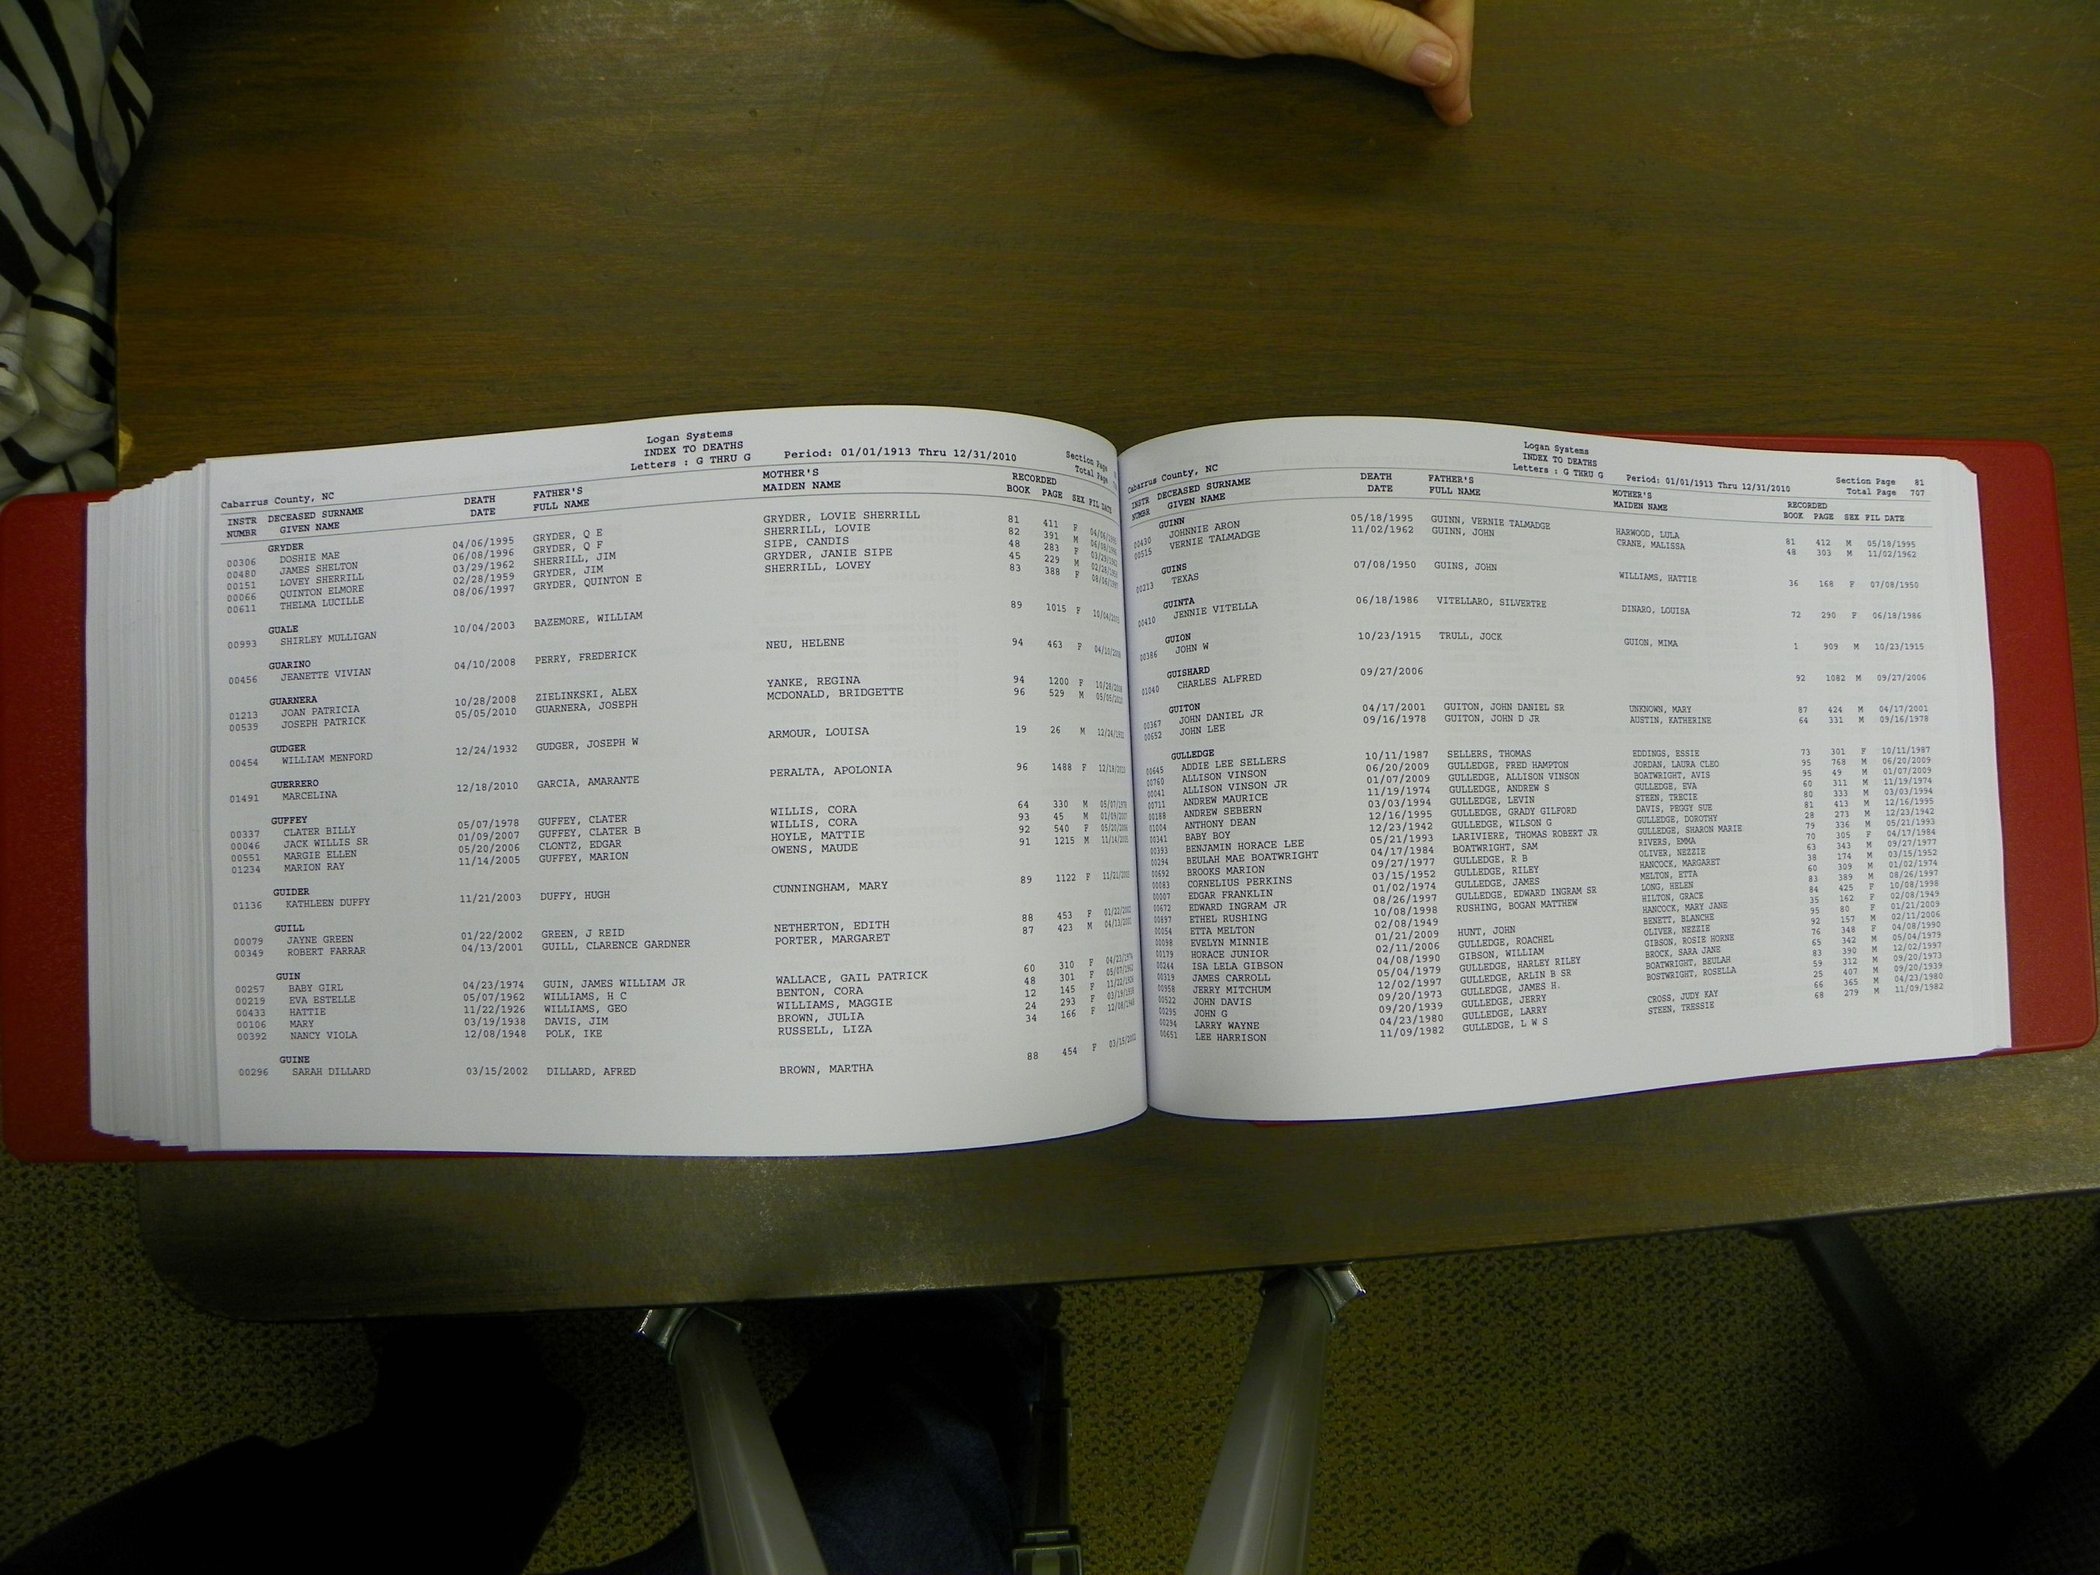 Logan Systems
INDEX TO DEATHS
Letters : G THRU G Period: 01/01/1913 Thru 12/31/2010 Section Page
Cabarrus County, NC Total Page
INSTR DECEASED SURNAME DEATH FATHER'S MOTHER'S RECORDED
NUMBR GIVEN NAME DATE FULL NAME MAIDEN NAME BOOK PAGE SEX FIL DATE
GRYDER
00306 DOSHIE MAE 04/06/1995 GRYDER, Q E GRYDER, LOVIE SHERRILL 81 411 F 04/06/1995
00480 JAMES SHELTON 06/08/1996 GRYDER, Q F SHERRILL, LOVIE 82 391 M 06/08/1996
00151 LOVEY SHERRILL 03/29/1962 SHERRILL, JIM SIPE, CANDIS 48 283 F 03/29/1962
00066 QUINTON ELMORE 02/28/1959 GRYDER, JIM GRYDER, JANIE SIPE 45 229 M 02/28/1959
00611 THELMA LUCILLE 08/06/1997 GRYDER, QUINTON E SHERRILL, LOVEY 83 388 F 08/06/1997
GUALE
00993 SHIRLEY MULLIGAN 10/04/2003 BAZEMORE, WILLIAM 89 1015 F 10/04/2003
GUARINO
00456 JEANETTE VIVIAN 04/10/2008 PERRY, FREDERICK NEU, HELENE 94 463 F 04/10/2008
GUARNERA
01213 JOAN PATRICIA 10/28/2008 ZIELINKSKI, ALEX YANKE, REGINA 94 1200 F 10/28/2008
00539 JOSEPH PATRICK 05/05/2010 GUARNERA, JOSEPH MCDONALD, BRIDGETTE 96 529 M 05/05/2010
GUDGER
00454 WILLIAM MENFORD 12/24/1932 GUDGER, JOSEPH W ARMOUR, LOUISA 19 26 M 12/24/1932
GUERRERO
01491 MARCELINA 12/18/2010 GARCIA, AMARANTE PERALTA, APOLONIA 96 1488 F 12/18/2010
GUFFEY
00337 CLATER BILLY 05/07/1978 GUFFEY, CLATER WILLIS, CORA 64 330 M 05/07/1978
00046 JACK WILLIS SR 01/09/2007 GUFFEY, CLATER B WILLIS, CORA 93 45 M 01/09/2007
00551 MARGIE ELLEN 05/20/2006 CLONTZ, EDGAR HOYLE, MATTIE 92 540 F 05/20/2006
01234 MARION RAY 11/14/2005 GUFFEY, MARION OWENS, MAUDE 91 1215 M 11/14/2005
GUIDER
01136 KATHLEEN DUFFY 11/21/2003 DUFFY, HUGH CUNNINGHAM, MARY 89 1122 F 11/21/2003
GUILL
00079 JAYNE GREEN 01/22/2002 GREEN, J REID NETHERTON, EDITH 88 453 F 01/22/2002
00349 ROBERT FARRAR 04/13/2001 GUILL, CLARENCE GARDNER PORTER, MARGARET 87 423 M 04/13/2001
GUIN
00257 BABY GIRL 04/23/1974 GUIN, JAMES WILLIAM JR WALLACE, GAIL PATRICK 60 310 F 04/23/1974
00219 EVA ESTELLE 05/07/1962 WILLIAMS, H C BENTON, CORA 48 301 F 05/07/1962
00433 HATTIE 11/22/1926 WILLIAMS, GEO WILLIAMS, MAGGIE 12 145 F 11/22/1926
00106 MARY 03/19/1938 DAVIS, JIM BROWN, JULIA 24 293 F 03/19/1938
00392 NANCY VIOLA 12/08/1948 POLK, IKE RUSSELL, LIZA 34 166 F 12/08/1948
GUINE
00296 SARAH DILLARD 03/15/2002 DILLARD, AFRED BROWN, MARTHA 88 454 F 03/15/2002
Logan Systems
INDEX TO DEATHS
Letters : G THRU G Period: 01/01/1913 Thru 12/31/2010 Section Page 81
Cabarrus County, NC Total Page 707
INSTR DECEASED SURNAME DEATH FATHER'S MOTHER'S RECORDED
NUMBR GIVEN NAME DATE FULL NAME MAIDEN NAME BOOK PAGE SEX FIL DATE
GUINN
00430 JOHNNIE ARON 05/18/1995 GUINN, VERNIE TALMADGE HARWOOD, LULA 81 412 M 05/18/1995
00515 VERNIE TALMADGE 11/02/1962 GUINN, JOHN CRANE, MALISSA 48 303 M 11/02/1962
GUINS
00213 TEXAS 07/08/1950 GUINS, JOHN WILLIAMS, HATTIE 36 168 F 07/08/1950
GUINTA
00410 JENNIE VITELLA 06/18/1986 VITELLARO, SILVERTRE DINARO, LOUISA 72 290 F 06/18/1986
GUION
00386 JOHN W 10/23/1915 TRULL, JOCK GUION, MIMA 1 909 M 10/23/1915
GUISHARD
01040 CHARLES ALFRED 09/27/2006 92 1082 M 09/27/2006
GUITON
00367 JOHN DANIEL JR 04/17/2001 GUITON, JOHN DANIEL SR UNKNOWN, MARY 87 424 M 04/17/2001
00652 JOHN LEE 09/16/1978 GUITON, JOHN D JR AUSTIN, KATHERINE 64 331 M 09/16/1978
GULLEDGE
00645 ADDIE LEE SELLERS 10/11/1987 SELLERS, THOMAS EDDINGS, ESSIE 73 301 F 10/11/1987
00760 ALLISON VINSON 06/20/2009 GULLEDGE, FRED HAMPTON JORDAN, LAURA CLEO 95 768 M 06/20/2009
00041 ALLISON VINSON JR 01/07/2009 GULLEDGE, ALLISON VINSON BOATWRIGHT, AVIS 95 49 M 01/07/2009
00711 ANDREW MAURICE 11/19/1974 GULLEDGE, ANDREW S GULLEDGE, EVA 60 311 M 11/19/1974
00188 ANDREW SEBERN 03/03/1994 GULLEDGE, LEVIN STEEN, TRECIE 80 333 M 03/03/1994
01004 ANTHONY DEAN 12/16/1995 GULLEDGE, GRADY GILFORD DAVIS, PEGGY SUE 81 413 M 12/16/1995
00341 BABY BOY 12/23/1942 GULLEDGE, WILSON G GULLEDGE, DOROTHY 28 273 M 12/23/1942
00393 BENJAMIN HORACE LEE 05/21/1993 LARIVIERE, THOMAS ROBERT JR GULLEDGE, SHARON MARIE 79 336 M 05/21/1993
00294 BEULAH MAE BOATWRIGHT 04/17/1984 BOATWRIGHT, SAM RIVERS, EMMA 70 305 F 04/17/1984
00692 BROOKS MARION 09/27/1977 GULLEDGE, R B OLIVER, NEZZIE 63 343 M 09/27/1977
00083 CORNELIUS PERKINS 03/15/1952 GULLEDGE, RILEY HANCOCK, MARGARET 38 174 M 03/15/1952
00007 EDGAR FRANKLIN 01/02/1974 GULLEDGE, JAMES MELTON, ETTA 60 309 M 01/02/1974
00672 EDWARD INGRAM JR 08/26/1997 GULLEDGE, EDWARD INGRAM SR LONG, HELEN 83 389 M 08/26/1997
00897 ETHEL RUSHING 10/08/1998 RUSHING, BOGAN MATTHEW HILTON, GRACE 84 425 F 10/08/1998
00054 ETTA MELTON 02/08/1949 HANCOCK, MARY JANE 35 162 F 02/08/1949
00098 EVELYN MINNIE 01/21/2009 HUNT, JOHN BENETT, BLANCHE 95 80 F 01/21/2009
00179 HORACE JUNIOR 02/11/2006 GULLEDGE, ROACHEL OLIVER, NEZZIE 92 157 M 02/11/2006
00244 ISA LELA GIBSON 04/08/1990 GIBSON, WILLIAM GIBSON, ROSIE HORNE 76 348 F 04/08/1990
00319 JAMES CARROLL 05/04/1979 GULLEDGE, HARLEY RILEY BROCK, SARA JANE 65 342 M 05/04/1979
00958 JERRY MITCHUM 12/02/1997 GULLEDGE, ARLIN B SR BOATWRIGHT, BEULAH 83 390 M 12/02/1997
00522 JOHN DAVIS 09/20/1973 GULLEDGE, JAMES H. BOSTWRIGHT, ROSELLA 59 312 M 09/20/1973
00295 JOHN G 09/20/1939 GULLEDGE, JERRY 25 407 M 09/20/1939
00294 LARRY WAYNE 04/23/1980 GULLEDGE, LARRY CROSS, JUDY KAY 66 365 M 04/23/1980
00651 LEE HARRISON 11/09/1982 GULLEDGE, L W S STEEN, TRESSIE 68 279 M 11/09/1982